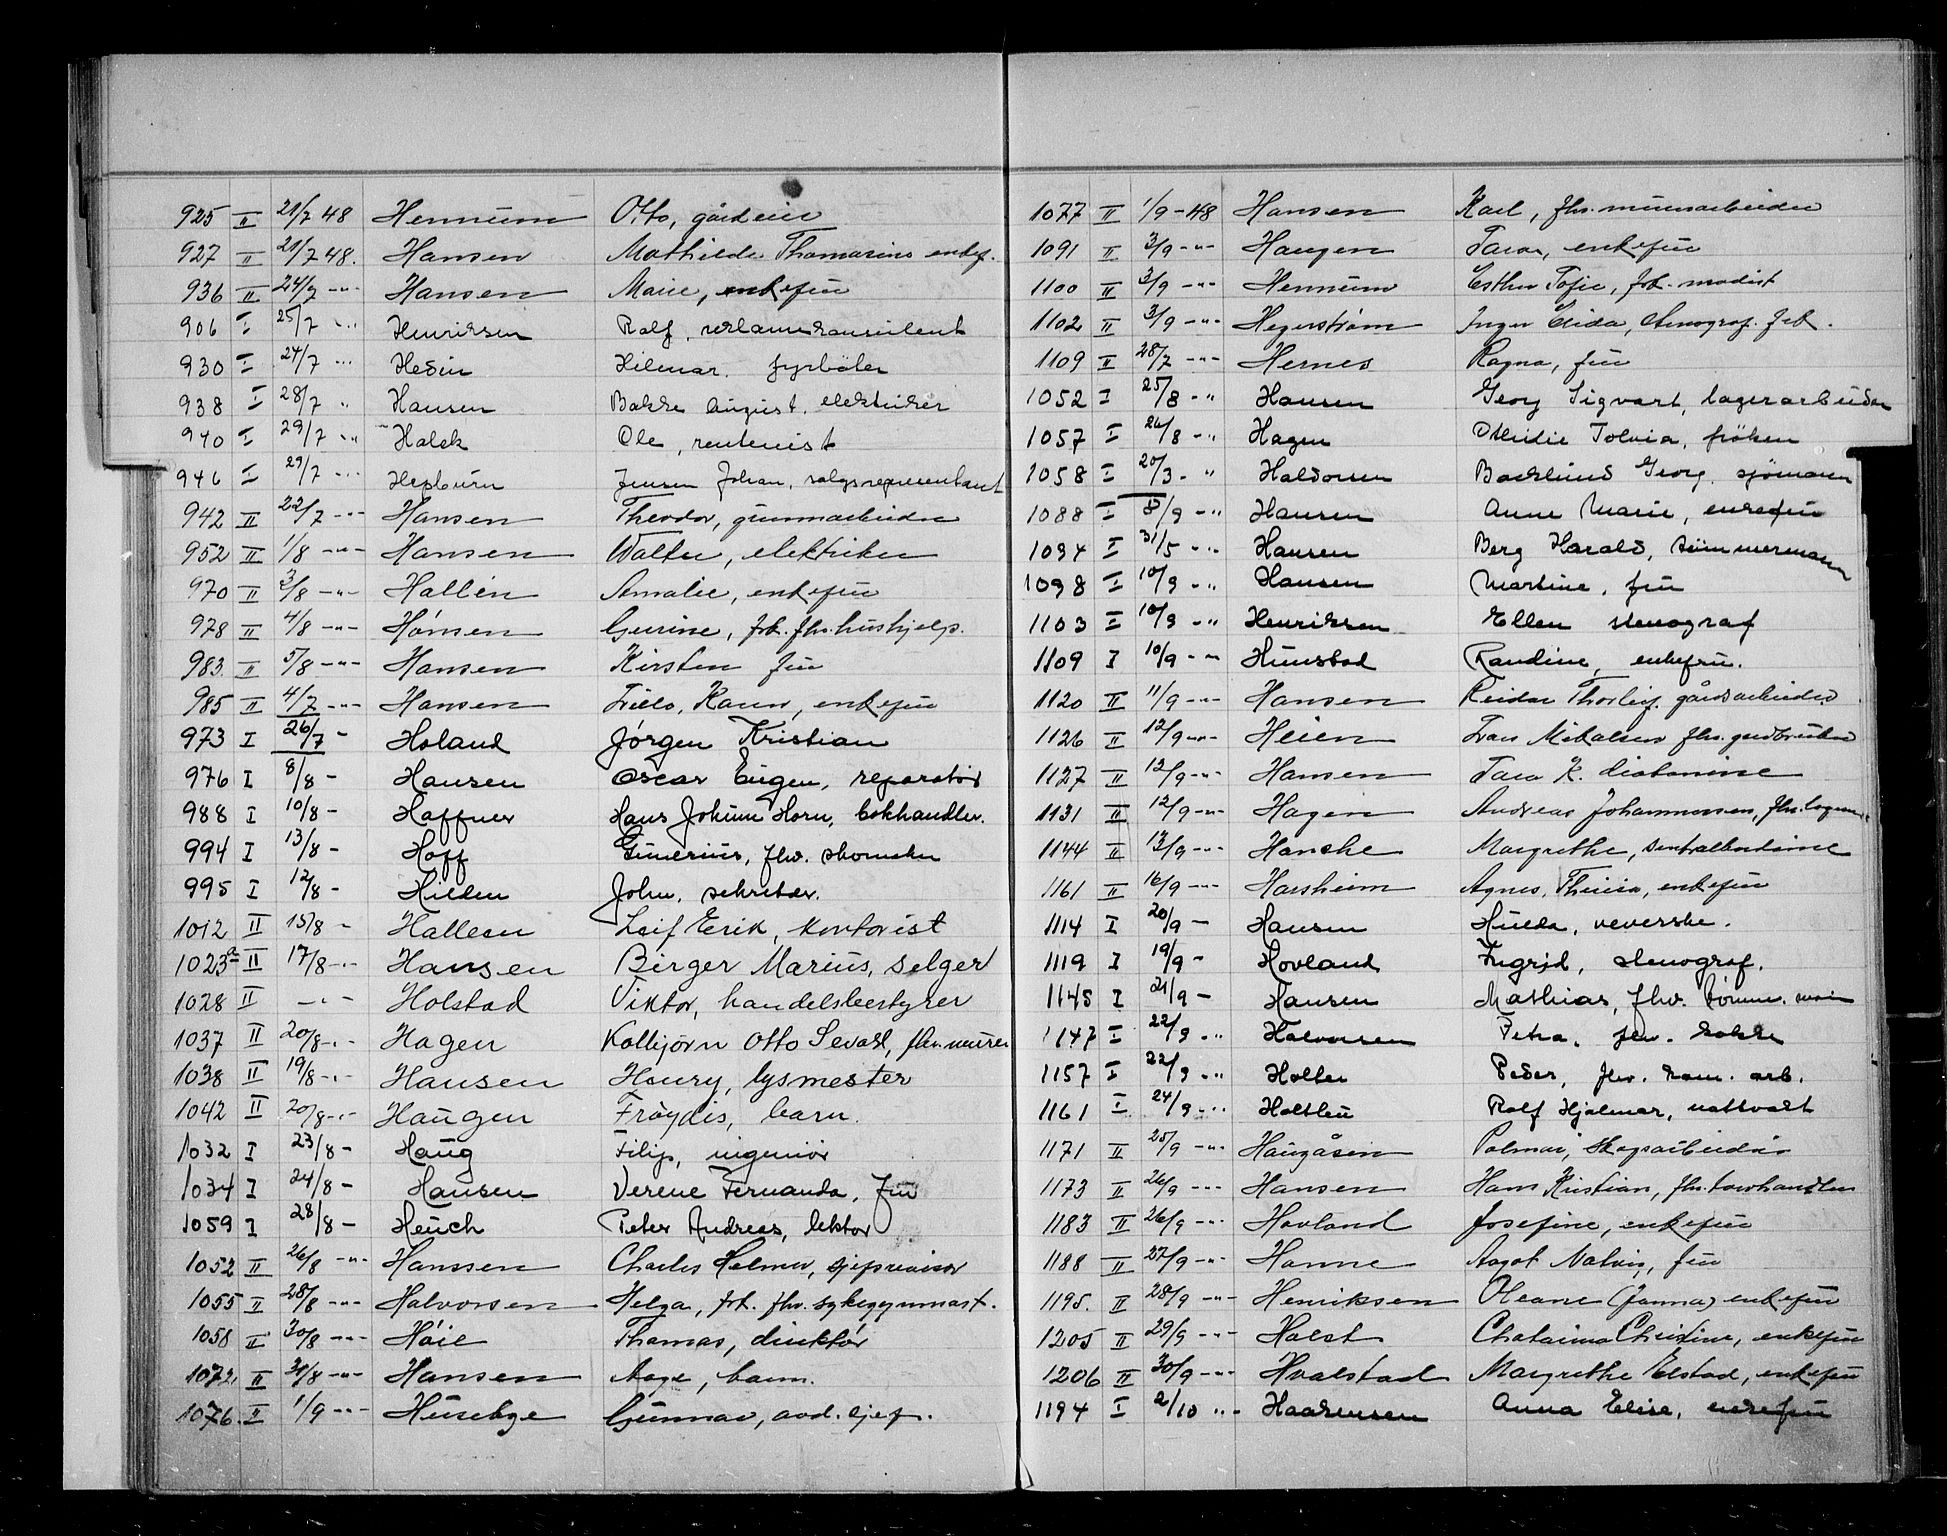 925 II 21/7 48 Hennum Otto, gårdeier
927 II 21/7 48. Hansen Mathilde Thomasine enkef.
936 II 24/7 -"- Hansen Marie, enkefru
906 I 25/7 -"- Henriksen Rolf, reklamekonsulent
930 I 24/7 -"- Hedin Hilmar. fyrbøter
938 I 28/7 " Hansen Bakke August, elektriker
940 I 29/7 -"- Holck Ole, rentenist
946 I 29/7 -"- Hepburn Jensen Johan, salgsrepresentant
942 II 22/7 -"- Hansen Theodor, gummarbeider
952 II 1/8 -"- Hansen Walter, elektriker
970 II 3/8 -"- Hallén Amalie, enkefru
978 II 4/8 -"- Hansen Gurine, frk. fhv. hushjelp.
983. II 5/8 -"- Hansen Kirsten fru
985 II 4/7 -"- Hansen Karen, enkefru
973 I 26/7 - Holand Jørgen Kristian
976 I 8/8 - Hansen Oscar Eugen, reparatør
988 I 10/8 - Haffner Hans Jokum Horn, bokhandler.
994 I 13/8 - Hoff Gunerius, fhv. skomaker
995 I 12/8 - Hilden John, sekretær.
1012 II 15/8 - Halleen Leif Erik, kontorist
1023a II 17/8 -"- Hansen Birger Marius, selger
1028 II -"- Holstad Viktor, handelsbestyrer
1037 II 20/8 -"- Hagen Kolbjørn Otto Sevald, fhv. murer
1038 II 19/8 -"- Hansen Henry, lysmester
1042 II 20/8 -"- Haugen Frøydis, barn.
1032 I 23/8 - Haug Filip, ingeniør
1034 I 24/8 - Hansen Verene Fernanda, fru
1059 I 28/8 - Heuch Peter Andreas, lektor
1052 II 26/8 -"- Hanssen Charles Holmer, sjefsrevisor
1055 II 28/8 -"- Halvorsen Helga, frk. fhv. sykegymnast.
1058 II 30/8 -"- Høie Thomas, direktør
1072. II 31/8 -"- Hansen Aage, barn.
1076. II 1/9 -"- Husebye Gunnar, avd. sjef.
1077 II 1/9 - 48 Hansen Karl, fhv. murerarbeider
1091 II 3/9 -"- Haugen Tara, enkefru
1100 II 3/9 -"- Hennum Esther Sofie, frk. modist
1102 II 3/9 -"- Hegerstrøm Inger Elida, stenograf. frk.
1109 II 28/7 -"- Hernes Ragna, fru
1052 I 25/8 -" Hansen Georg Sigvart, lagerarbeider
1057 I 26/8 -" Hagen Tolvia, frøken
1058 I 20/3 - " Haldorsen Backlund Georg. sjømann
1088 I 8/9 -" Hansen Anne Marie, enkefru
1094 I 31/5 -" Hansen Berg Harald, tømmermann
1098 I 10/9 -" Hansen Martine, fru
1103 I 10/9 -" Henriksen Ellen stenograf
1109 I 10/9 -"- Hunstad Randine, enkefru.
1120 II 11/9 -"- Hansen Reidar Thorleif. gårdsarbeider
1126 II 12/9 -"- Heien Mikalsen fhv. gardbruker
1127 II 12/9 -"- Hansen Tara K. diakonisse
1131 II 12/9 -"- Hagen Andreas Johannessen, fhv.
1144 II 13/9 -"- Hanche Margrethe, sentralborddame
1161 II 16/9 -"- Harsheim Agnes, Theresia, enkefru
1114 I 20/9 - Hansen Hulda, veverske.
1119 I 19/9 - Hovland Ingrid, stenograf.
1145 I 21/9 - Hansen Mathias, fhv. tømm. mann
1147 I 22/9 -" Halvorsen Petra, fhv. kokke
1157 I 22/9 -" Holter Peder, fhv. kom. arb.
1161 I 24/9 -" Holtleu Rolf Hjalmar, nattvakt
1171 II 25/9 -"- Haugåsen Palmar, skogsarbeider
1173 II 26/9 -"- Hansen Hans Kristian, fhv. torvhandler
1183 II 26/9 -"- Hovland Josefine, enkefru
1188 II 27/9 -"- Hanne Aagot Natvig, fru
1195. II 28/9 -"- Henriksen Oleane (Janna) enkefru
1205 II 29/9 -"- Holst Christine, enkefru
1206 II 30/9 -"- Hvalstad Margrethe Elstad, enkefru
1194 I 2/10 "- Haakensen Anna Elise, enkefru